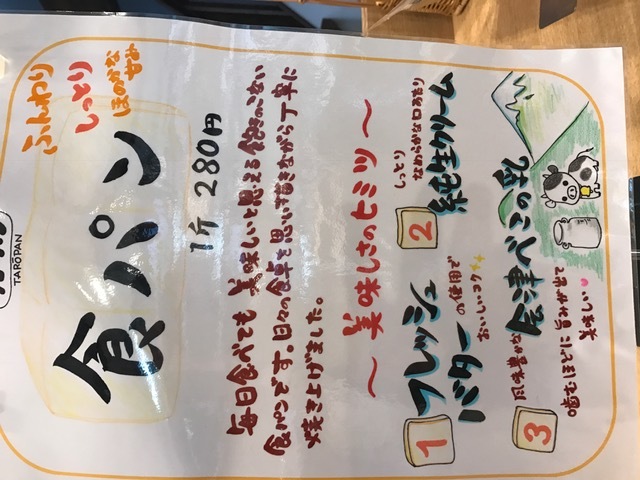 TARŌPAN
ふんわり
しっとり
ほのかな
甘み
食パン
1斤 280円
毎日食べても美味しいと思える飽きのこない
食パンです。日々の食卓を思い描きながら丁寧に
焼き上げました。
～美味しさのヒミツ～
1 フレッシュ
バターの使用で
おいしいコク
2 しっとり
なめらかな口あたり
純生クリーム
3 風味豊かな
会津べこの乳
で
いします